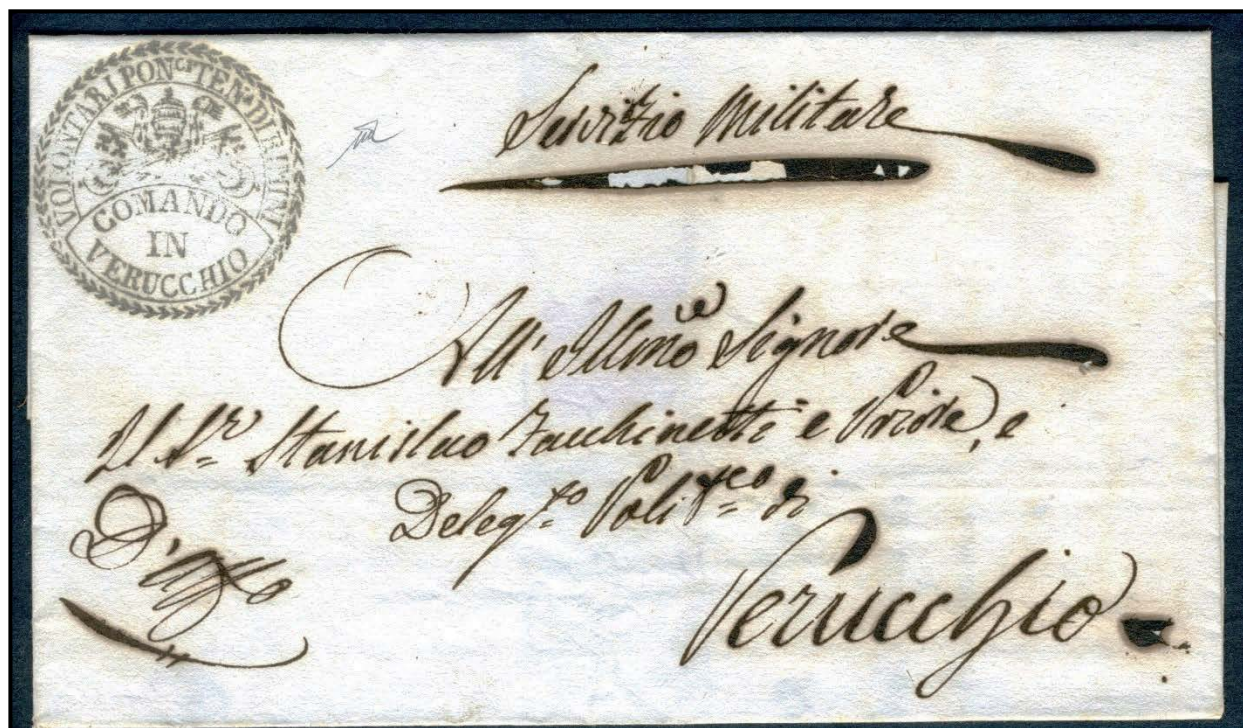 VOLONTARJ PON.CJ TEN.A DI RIMINI
COMANDO
IN
VERUCCHIO
Servizio Militare
All' Illmo Signore
Il Sr. Stanislao Zacchinetti e Priore, e
Deleg.to Polit.co di
D'uffo
Verucchio